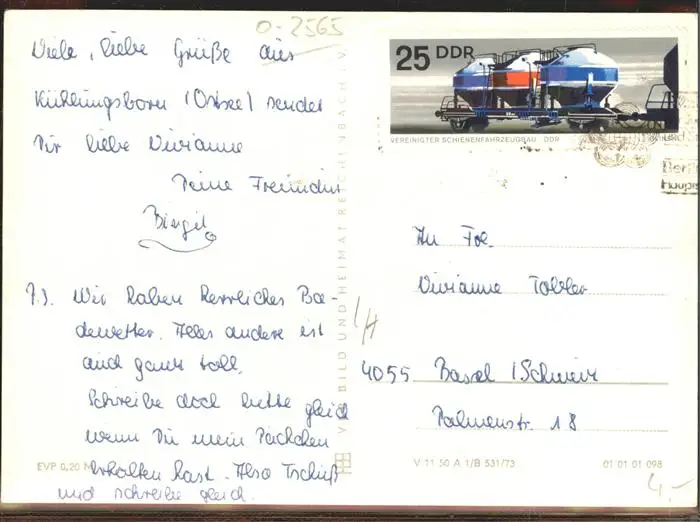 0-2565
Viele, liebe Grüße aus
Kühlungsborn (Ostsee) sendet
Dir liebe Vivianne
Deine Freundin
Birgit
P.S. Wir haben herrliches Ba-
dewetter. Alles andere ist
auch ganz toll.
Schreibe doch bitte gleich
wenn Du mein Päckchen
erhalten hast. Also Tschüß
und schreibe gleich.
EVP 0,20 M
BILD UND HEIMAT REICHENBACH I. V.
25 DDR
VEREINIGTER SCHIENENFAHRZEUGBAU DDR
Berli
Haupt
An Frl.
Vivianne Tobler
4055 Basel /Schweiz
Palmenstr. 18
V 11 50 A 1/B 531/73
01 01 01 098
4,-